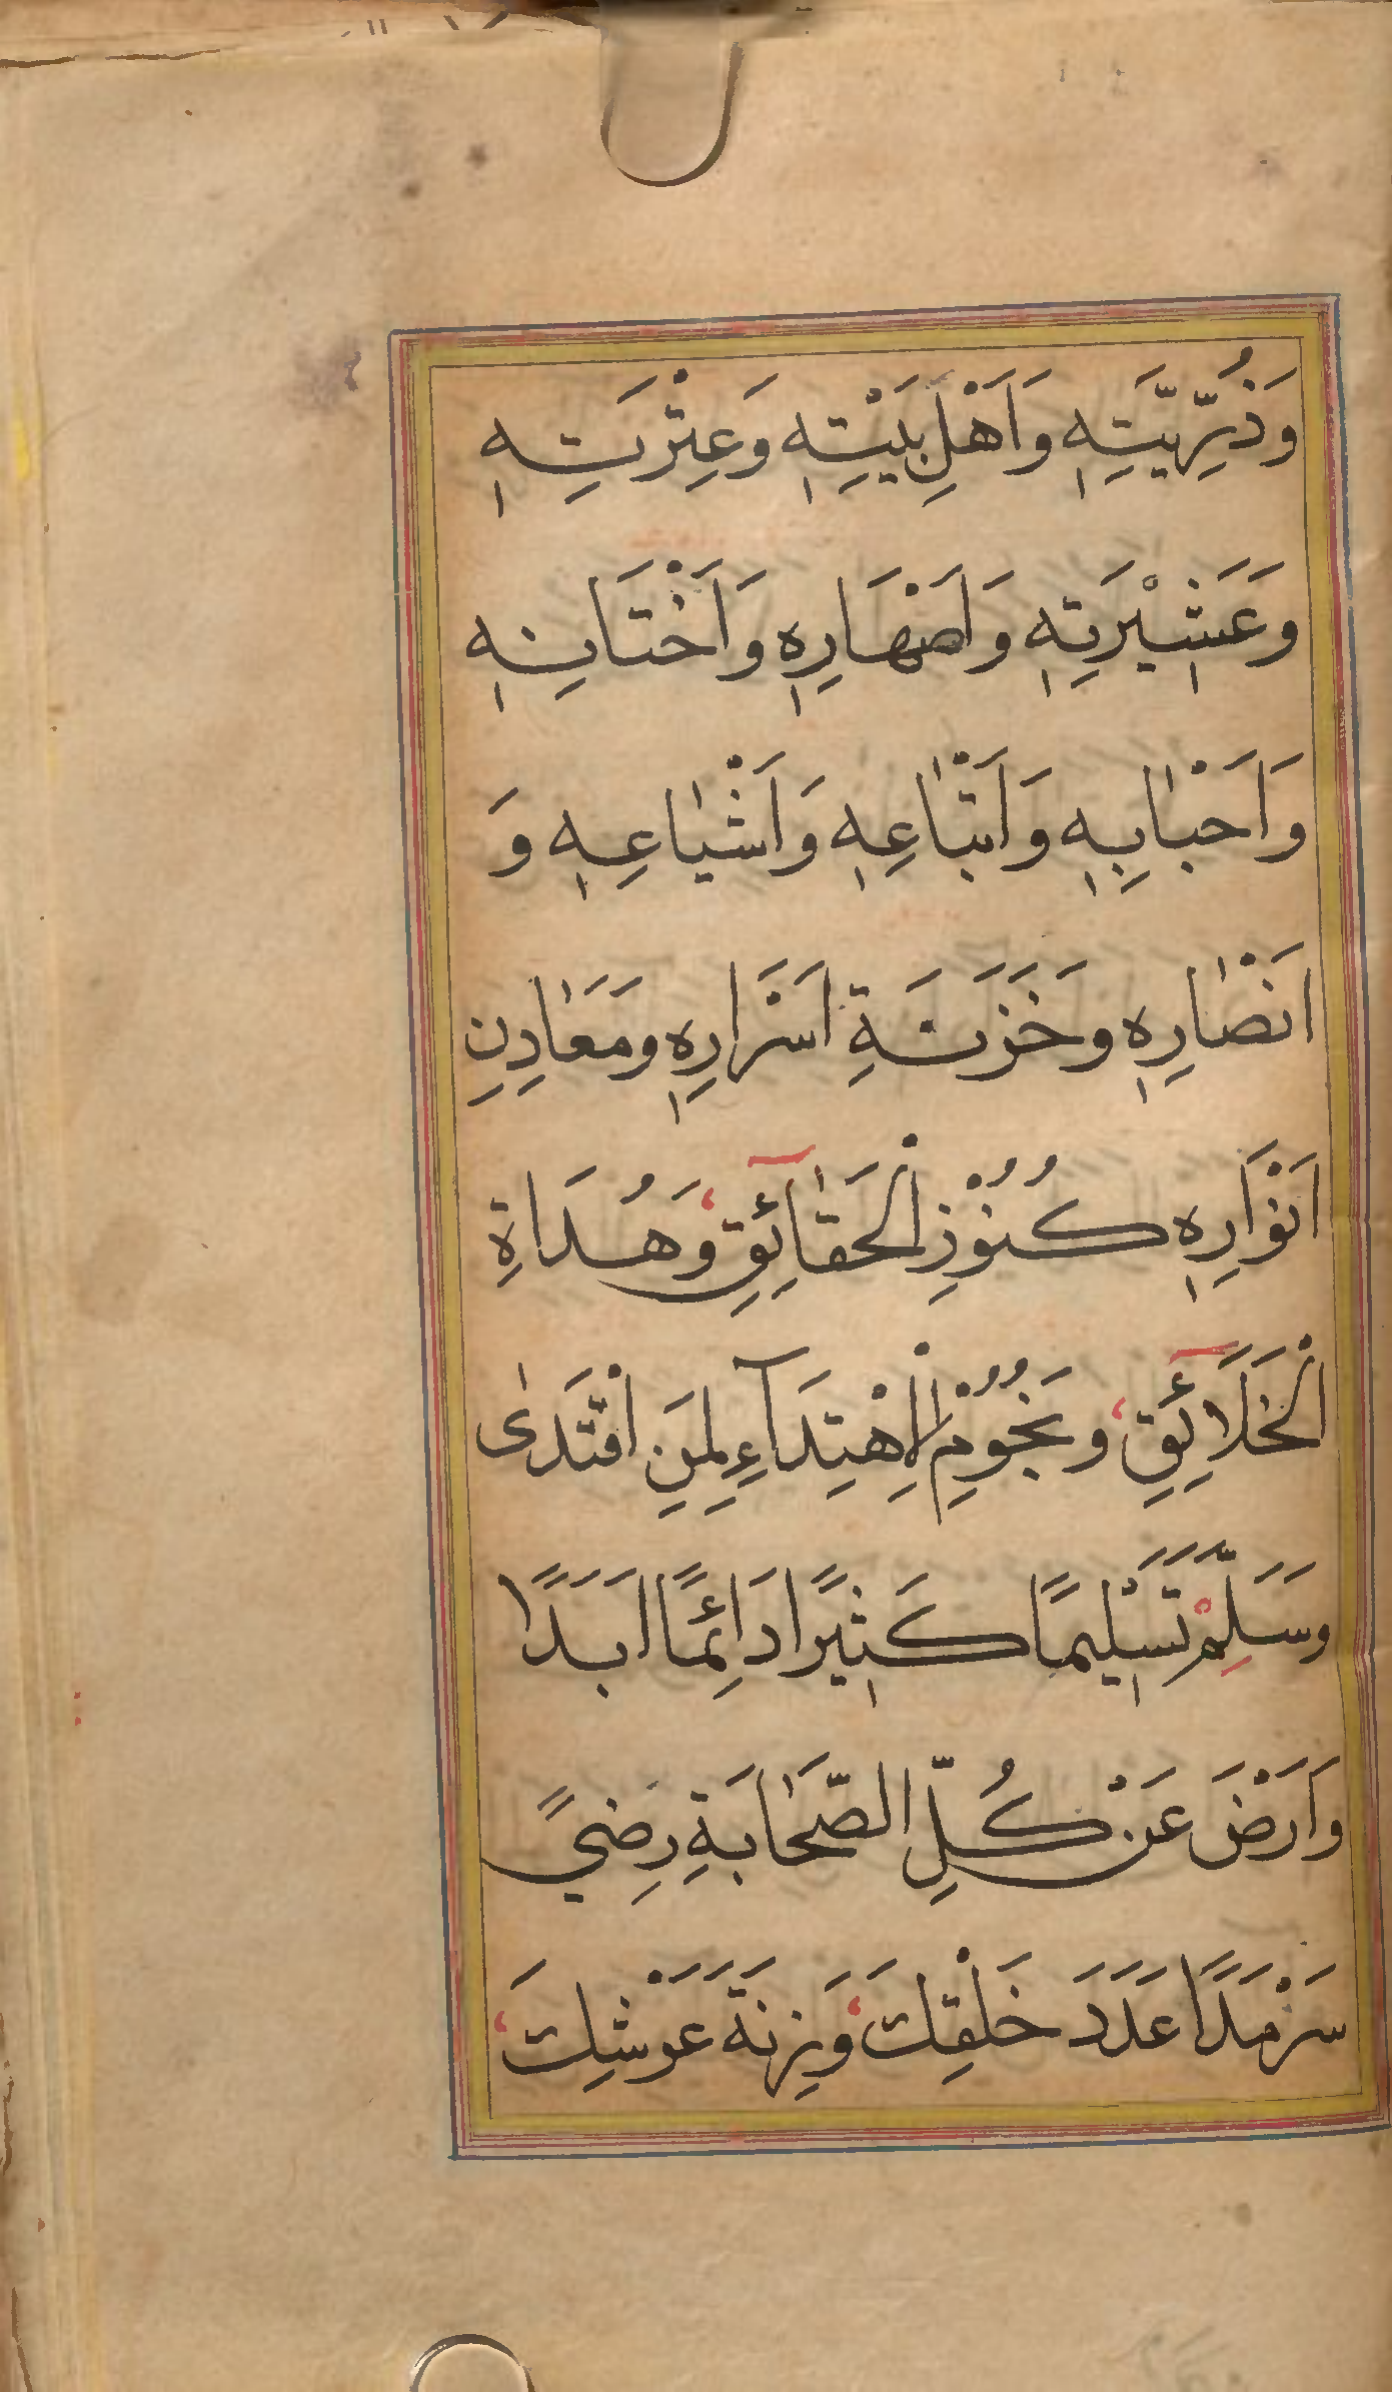 وَذُرِّيَّتِهٖ وَاَهْلِ بَيْتِهٖ وَعِتْرَتِهٖ
وَعَشِيْرَتِهٖ وَاَصْهَارِهٖ وَاَخْتَانِهٖ
وَاَحْبَابِهٖ وَاَتْبَاعِهٖ وَاَشْيَاعِهٖ وَ
اَنْصَارِهٖ وَخَزَنَةِ اَسْرَارِهٖ وَمَعَادِنِ
اَنْوَارِهٖ كُنُوْزِ الْحَقَآئِقِ وَهُدَاةِ
الْخَلَآئِقِ وَنُجُوْمِ الْاِهْتِدَآءِ لِمَنِ اقْتَدٰى
وَسَلِّمْ تَسْلِيْمًا كَثِيْرًا دَائِمًا اَبَدًا
وَارْضَ عَنْ كُلِّ الصَّحَابَةِ رِضًي
سَرْمَدًا عَدَدَ خَلْقِكَ وَزِنَةَ عَرْشِكَ